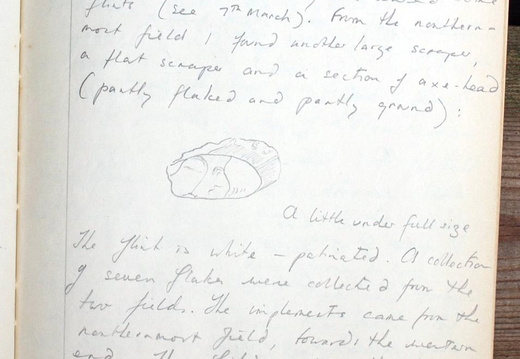 flints (see 7th March). From the northern-
most field I found another large scraper,
a flat scraper and a section of axe-head
(partly flaked and partly ground):
A little under full size
The flint is white-patinated. A collection
of seven flakes were collected from the
two fields. The implements came from the
northernmost field, towards the western
end. The